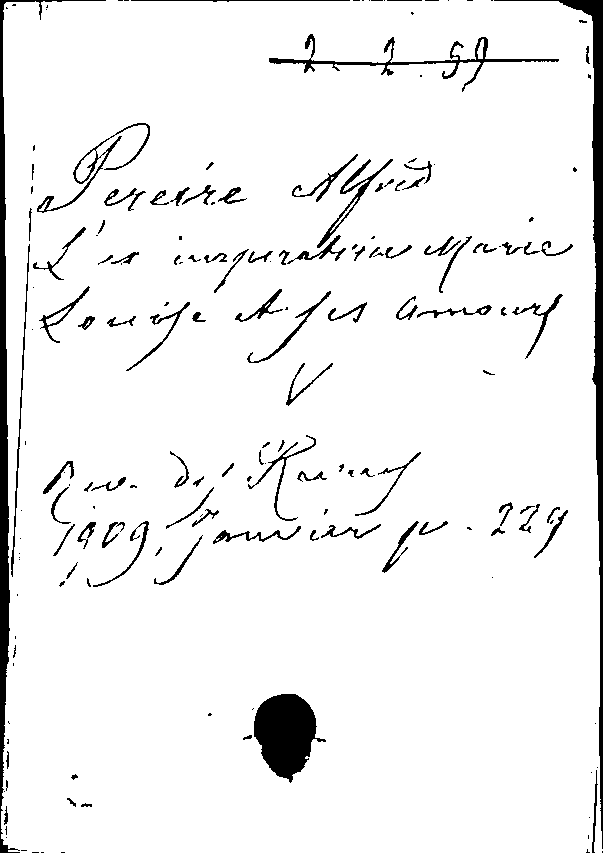 2. 2. 59
Pereire Alfred
L'ex impératrice Marie
Louise et ses amours
V
Rev. des
1909, Janvier p. 229